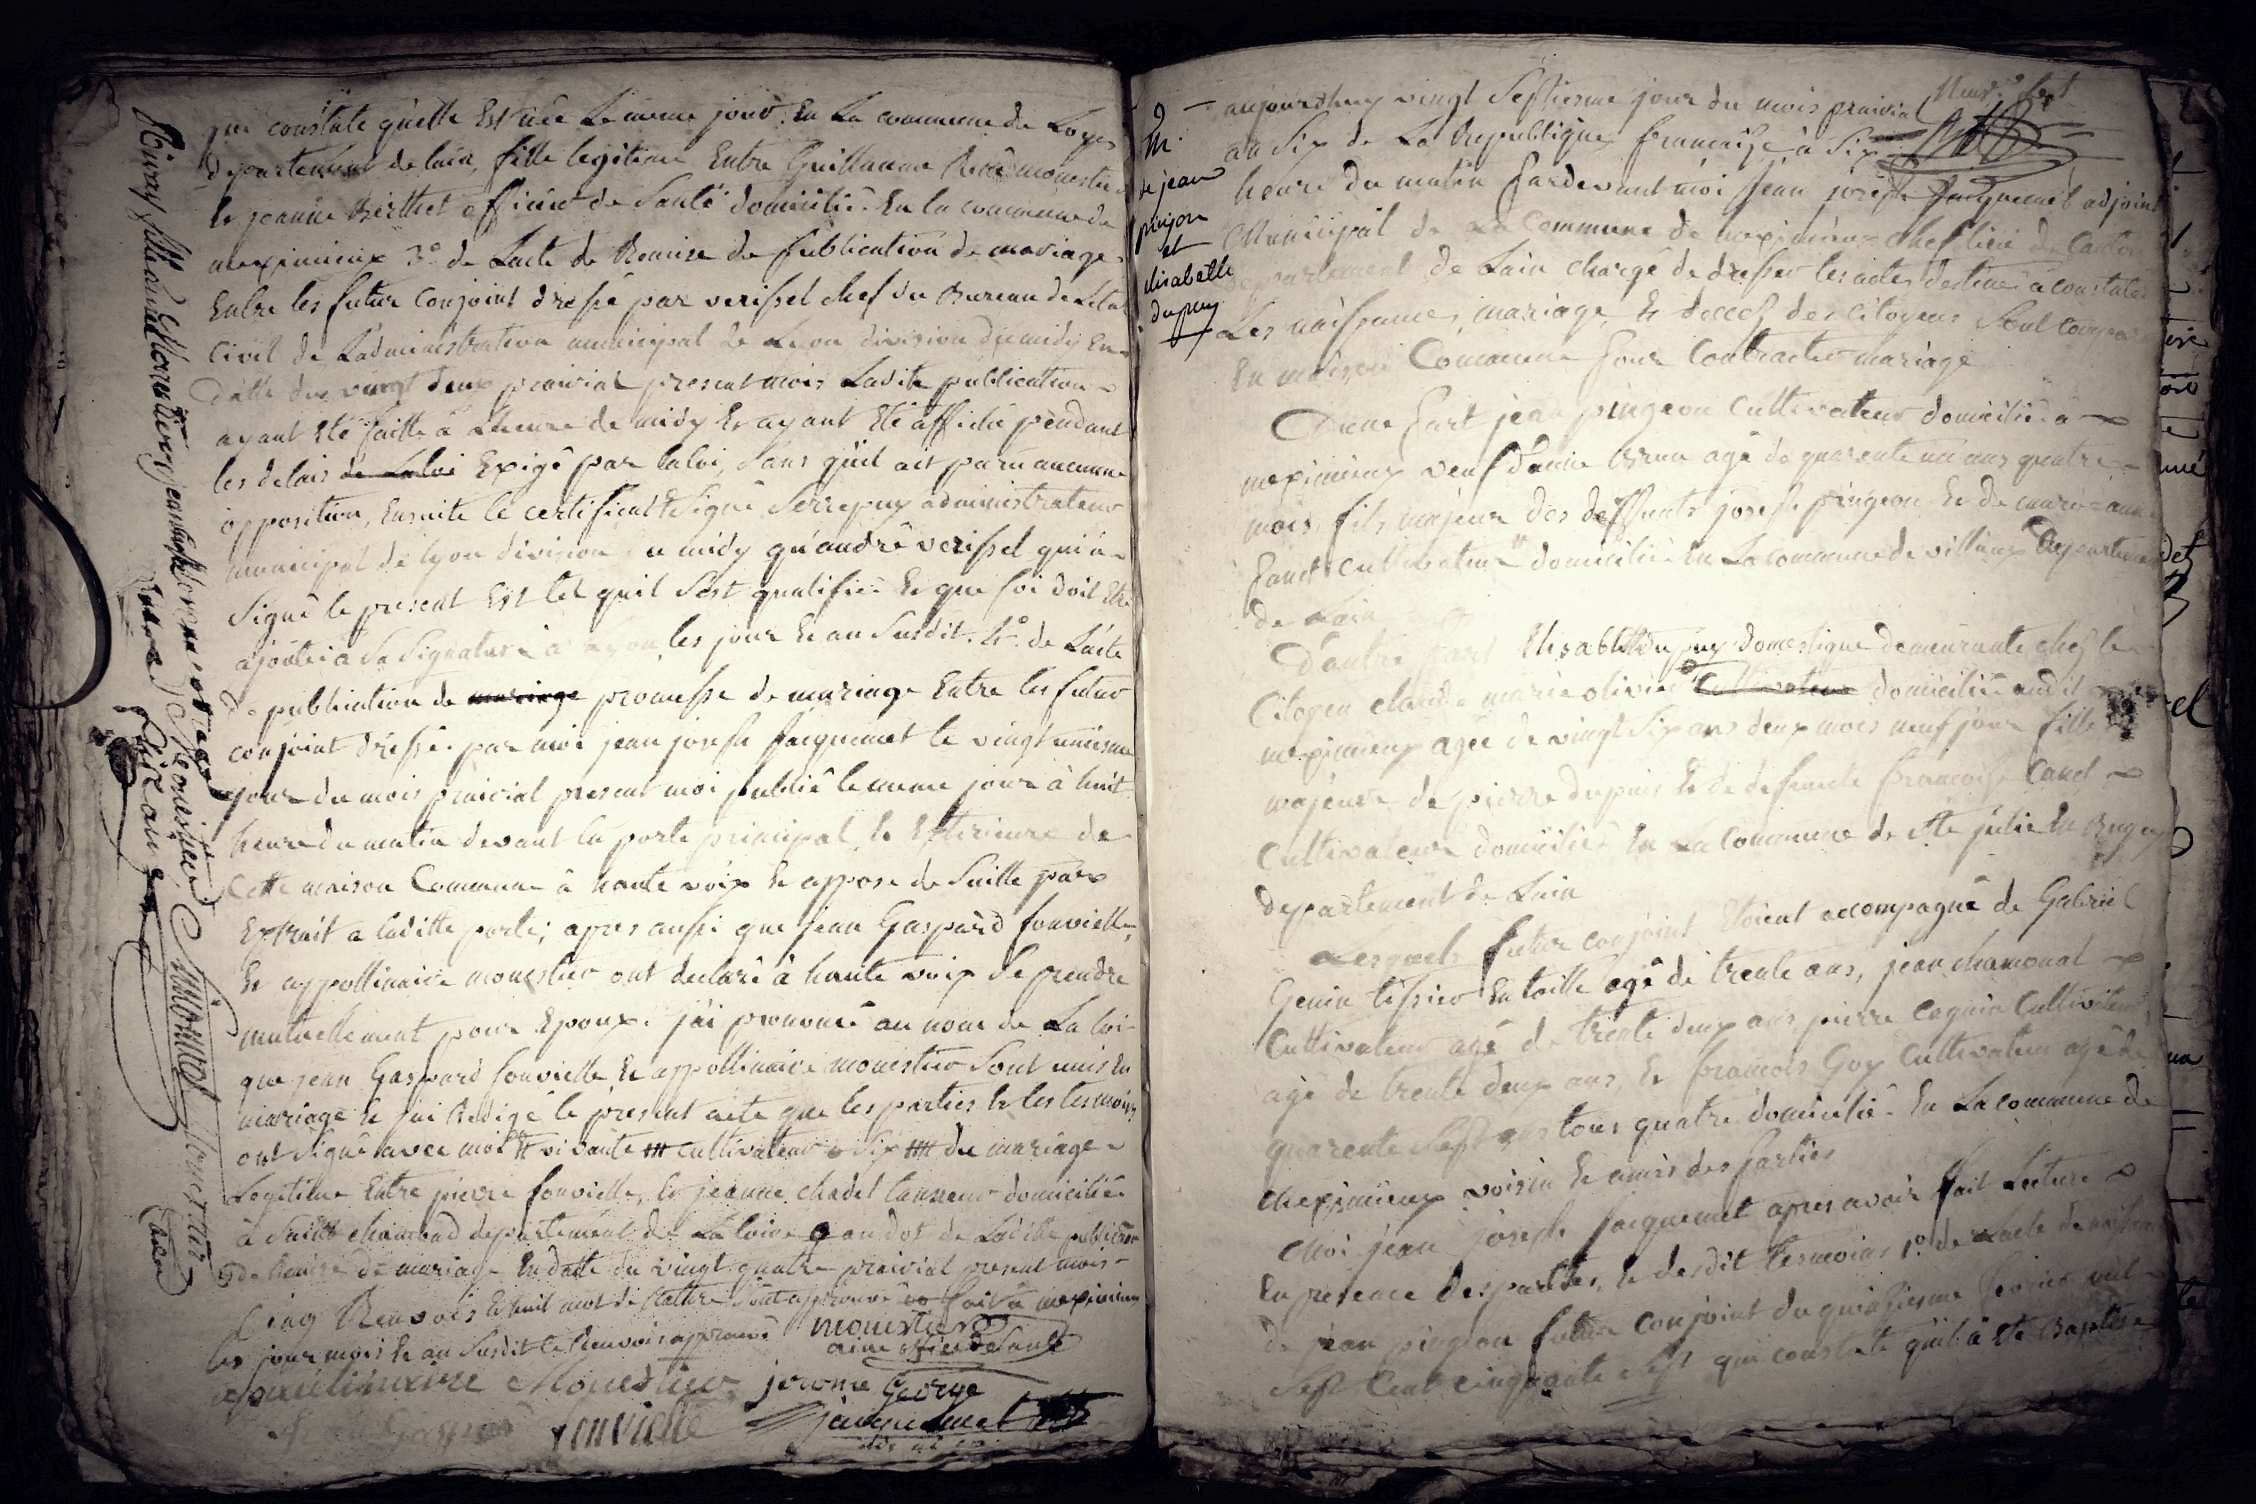 qui constate quelle Est née Le meme jour En La commune de Loyes
departement de lain, fille legitime Entre Guillaume monestier
Et jeannie Berthet officier de Santé domicilié En la commune de
meximieux 3º de Lacte de Remise de publication de mariage
Entre les futur Conjoint dressé par verissel chef du Bureau de Letat
Civil de Ladministration municipal de Lion division du midi En
datte du vingt deux prairial present mois Ladite publication
ayant Eté faitte à Lheure de midy Et ayant Eté affiché pendant
les delais de La loi Exigé par la loi, Sans quil ait paru aucunne
opposition, Ensuite le certificat Signé Serrepuy administrateur
municipal de lyon division du midy qu'andré verissel qui a
Signé le present Est tel quil Sest qualifié Et que foi doit Etre
ajoutée à Sa Signature à Lyon les jour Et an Susdit. 4º. de Lacte
de publication de mariage promesse de mariage Entre les futur
conjoint dressé par moi jean joseph jacquemet le vingt uniesme
jour du mois prairial present moi publié le meme jour à huit
heure du matin devant la porte principal Et Exterieure de
Cette maison Commune à haute voix Et apposé de Suitte par
Extrait a laditte porte; apres aussi que jean Gaspard fonvielle
Et appollinaire monestier ont declaré à haute voix Se prendre
mutuellement pour Epoux. j'ai prononcé au nom de La loi
que jean Gaspard fonvielle Et appollinaire monestier Sont unis En
mariage Et j'ai Redigé le present acte que les parties Et les tesmoins
ont Signé avec moi vivante cultivateur Six du mariage
Legitime Entre pierre fonvielle, Et jeanne chadel tanneur domicilié
à Saint chamond departement de La loire au dos de Laditte publication
de Remise de mariage En datte du vingt quatre prairial present mois
Cinq Renvois Et huit mot de Rature Sont approuvé fait à meximieux
les jour mois Et an Susdit Ce Renvois approuvé monestier
ainé officier de Santé
apaulinaire Monestier jerome George
fonvielle jacquemet
M.
de jean
pinjon
et
elisabette
dupuy
aujourdhuy vingt Septiesme jour du mois prairial
an Six de La Republique francaise à Six
heure du matin pardevant moi jean joseph jacquemet adjoint
Municipal de La Commune de meximieux chef lieu de Canton
departement de Lain chargé de dresser les actes destinés à constater
Les naissances, mariage, Et deces des citoyens Sont comparu
En maison Commune pour Contracter mariage
Dune part jean pingeon Cultivateur domicilié à
meximieux veuf danne Brun agé de quarente un ans quatre
mois, fils majeur des deffunts joseph pingeon Et de marie anne
Cultivateur domicilié En La commune de villieux departement
de Lain
D'autre part Elisabette dupuy domestique demeurante chez le
Citoyen claude marie olivier Cultivateur domicilié audit
meximieux agée de vingt Six ans deux mois neuf jour fille
majeure de pierre dupuis Et de defuncte francoise Canet
Cultivateur domicilié En La Commune de Ste julie En Bugey
departement de Lain
Lesquels futur conjoint Etoient accompagné de Gabriel
Genin tissier En toille agé de trente ans, jean chamonal
Cultivateur agé de trente deux ans, pierre Cognin Cultivateur
agé de trente deux ans, Et francois Goy Cultivateur agé de
quarente Sept ans tous quatre domicilié En La commune de
Meximieux voisin Et amis des parties
Moi jean joseph jacquemet apres avoir fait Lecture
En presence des parties, Et desdit tesmoins 1º. de Lacte de naissance
de jean pingeon futur conjoint du quinziesme fevrier mil
Sept Cent cinquante Sept qui constate quil à Eté Baptisé